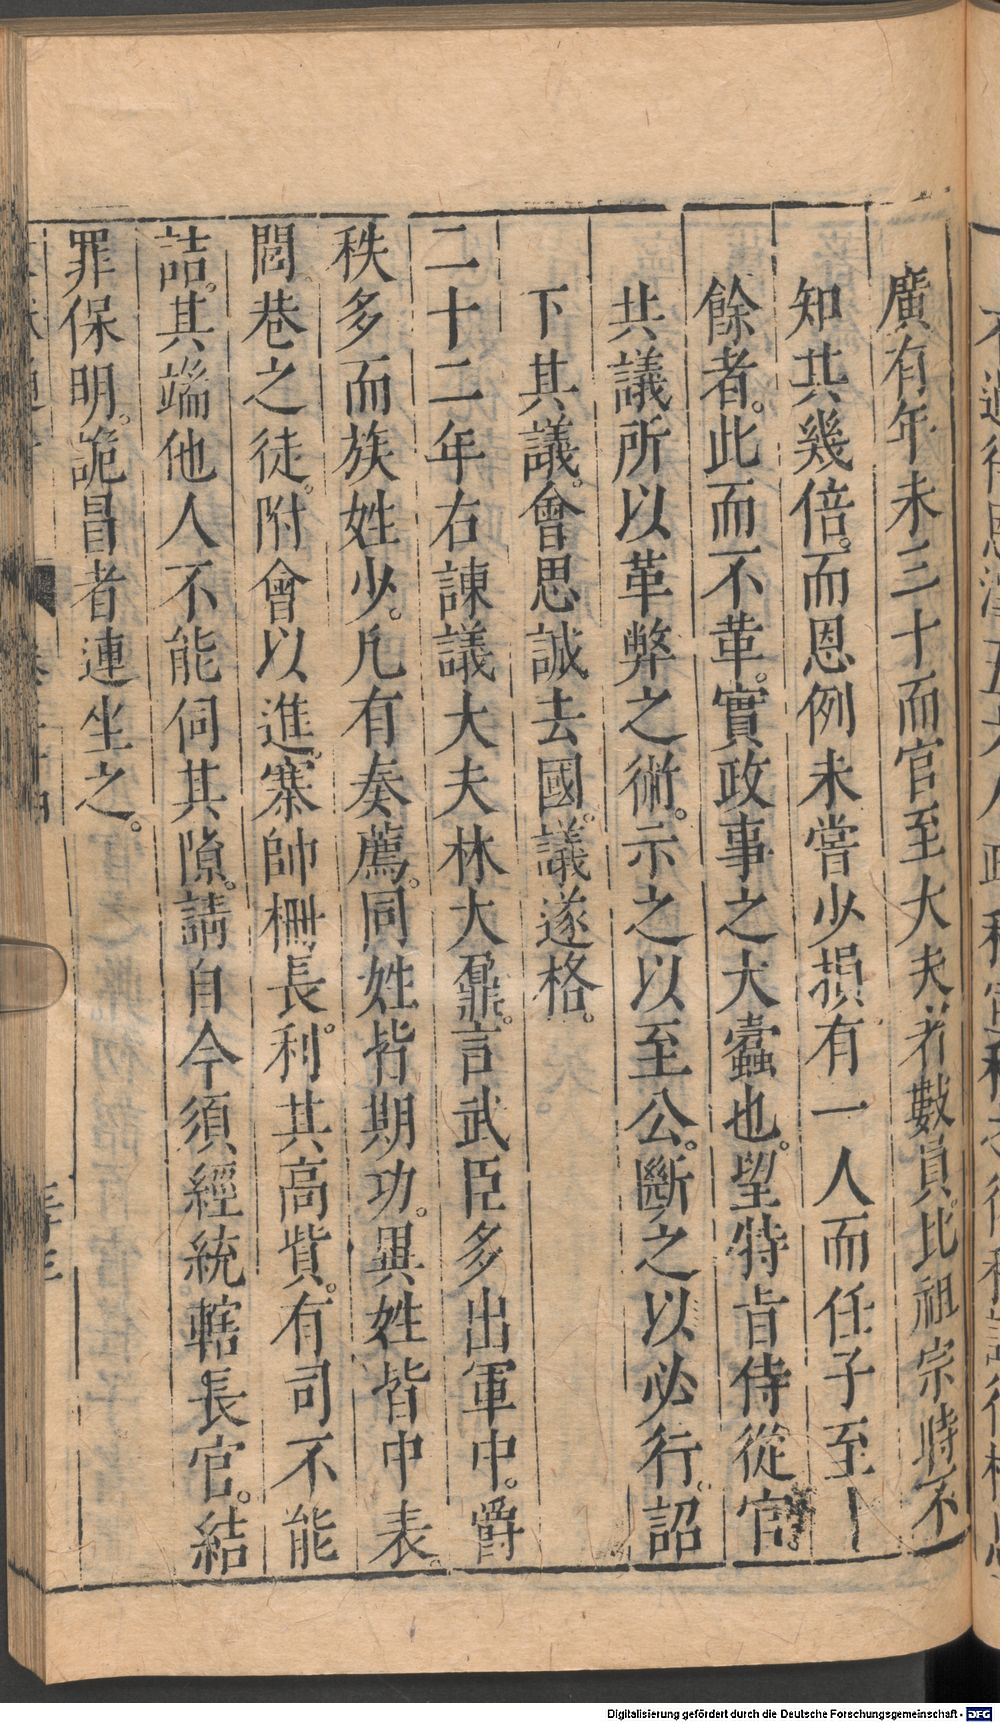 廣有年未三十而官至大夫者數員比祖宗時不
知其幾倍。而恩例未嘗少損。有一人而任子至十
餘者。此而不革。實政事之大蠹也。望特旨侍從官。
共議所以革弊之術。示之以至公。斷之以必行。詔
下其議。會思誠去國。議遂格。
二十二年右諫議大夫林大鼐。言武臣多出軍中。爵
秩多而族姓少。凡有奏薦。同姓皆期功。異姓皆中表。
閭巷之徒。附會以進。寨帥柵長。利其高貲。有司不能
詰。其端他人不能伺其隙。請自今須經統轄。長官。結
罪保明。詭冒者連坐之。
Digitalisierung gefördert durch die Deutsche Forschungsgemeinschaft - DFG